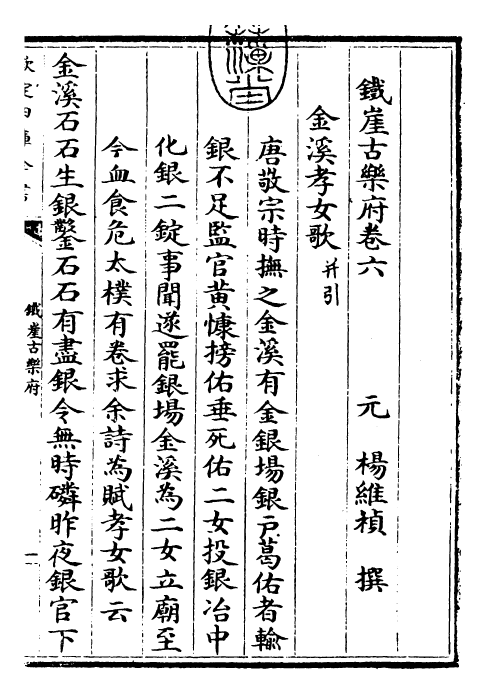 鐵崖古樂府卷六
元 楊維楨 撰
金溪孝女歌 并引
唐敬宗時撫之金溪有金銀場銀戶葛佑者輸
銀不足監官黃慷搒佑垂死佑二女投銀冶中
化銀二錠事聞遂罷銀場金溪為二女立廟至
今血食危太樸有卷求余詩為賦孝女歌云
金溪石石生銀鑿石石有盡銀令無時磷昨夜銀官下
鐵崖古樂府
一